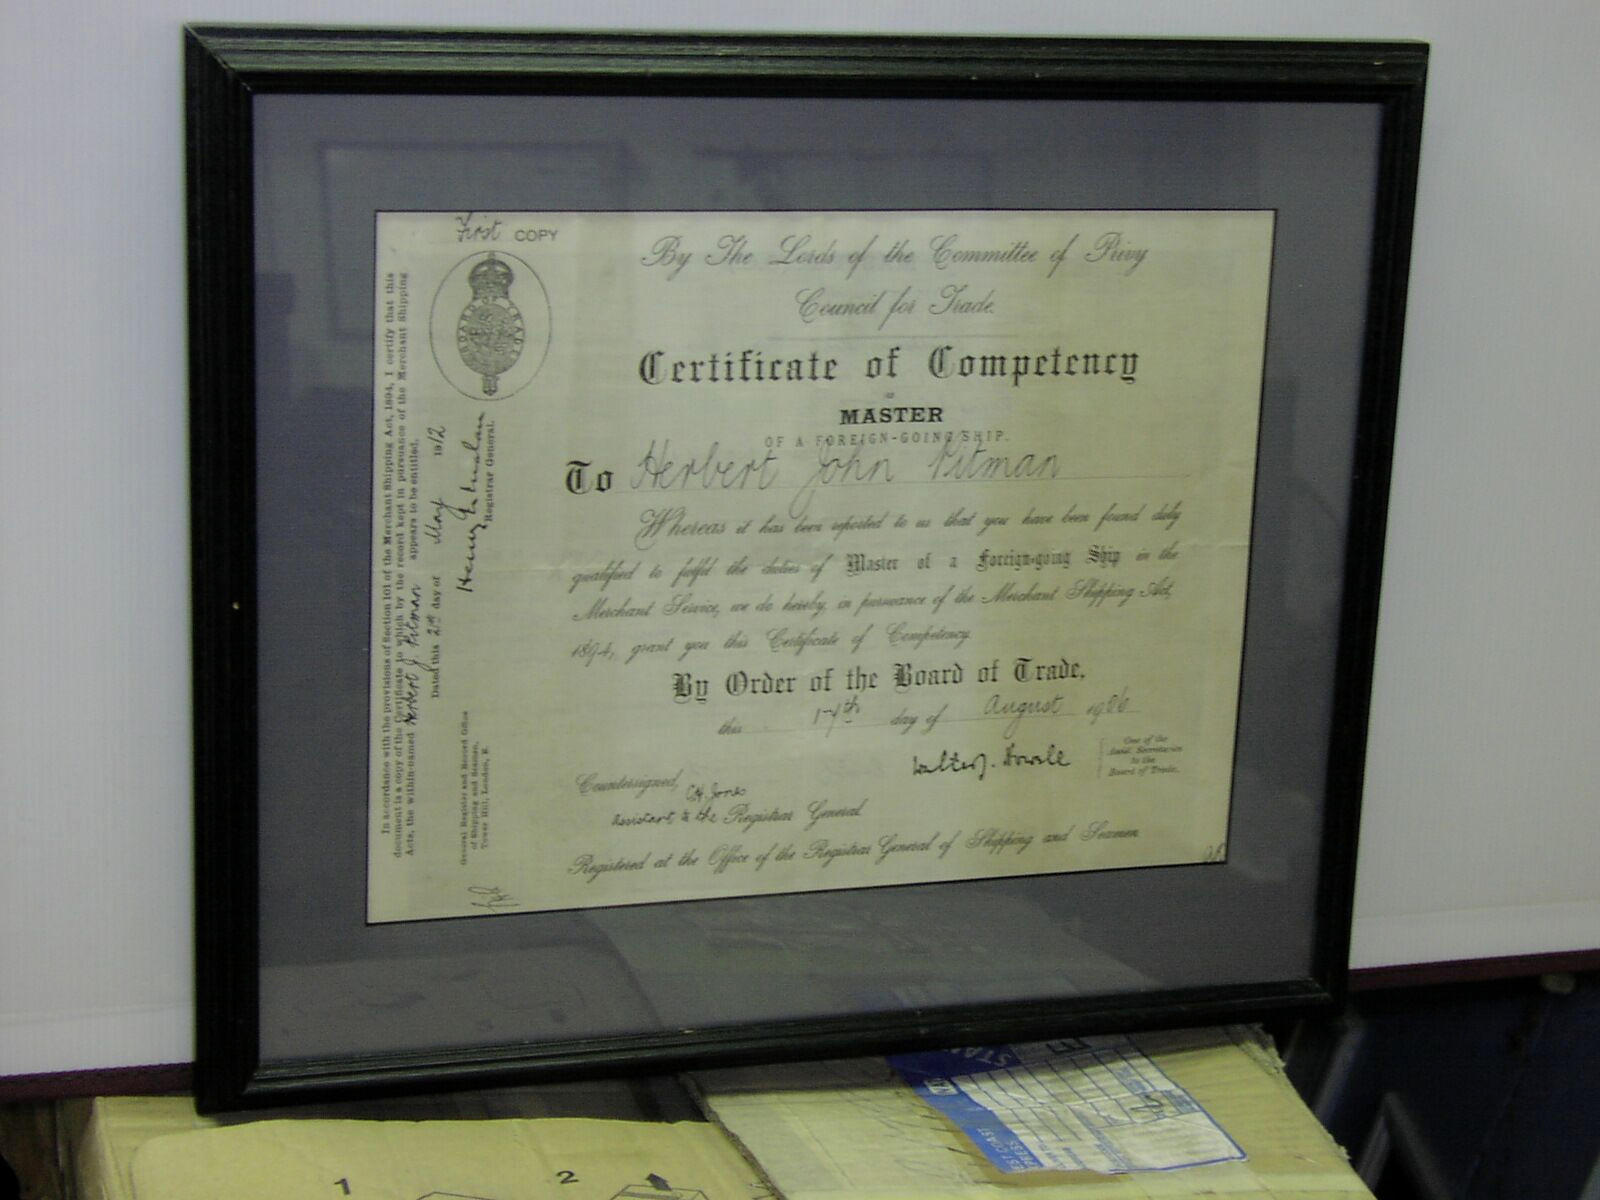 First COPY
By The Lords of the Committee of Privy
Council for Trade.
Certificate of Competency
as
MASTER
OF A FOREIGN-GOING SHIP.
To Herbert John Pitman
Whereas it has been reported to us that you have been found duly
qualified to fulfil the duties of Master of a Foreign-going Ship in the
Merchant Service, we do hereby, in pursuance of the Merchant Shipping Act,
1894, grant you this Certificate of Competency.
By Order of the Board of Trade,
this 17th day of August 1906
Walter J. Howell
One of the
Asst. Secretaries
to the
Board of Trade.
Countersigned,
C.H. Jones
Assistant to the Registrar General.
Registered at the Office of the Registrar General of Shipping and Seamen
In accordance with the provisions of Section 101 of the Merchant Shipping Act, 1894, I certify that this
document is a copy of the Certificate to which by the record kept in pursuance of the Merchant Shipping
Acts, the within-named Herbert J. Pitman appears to be entitled.
Dated this 2nd day of May 1912
Henry
Registrar General.
General Register and Record Office
of Shipping and Seamen,
Tower Hill, London, E.
BOARD OF TRADE
1
2